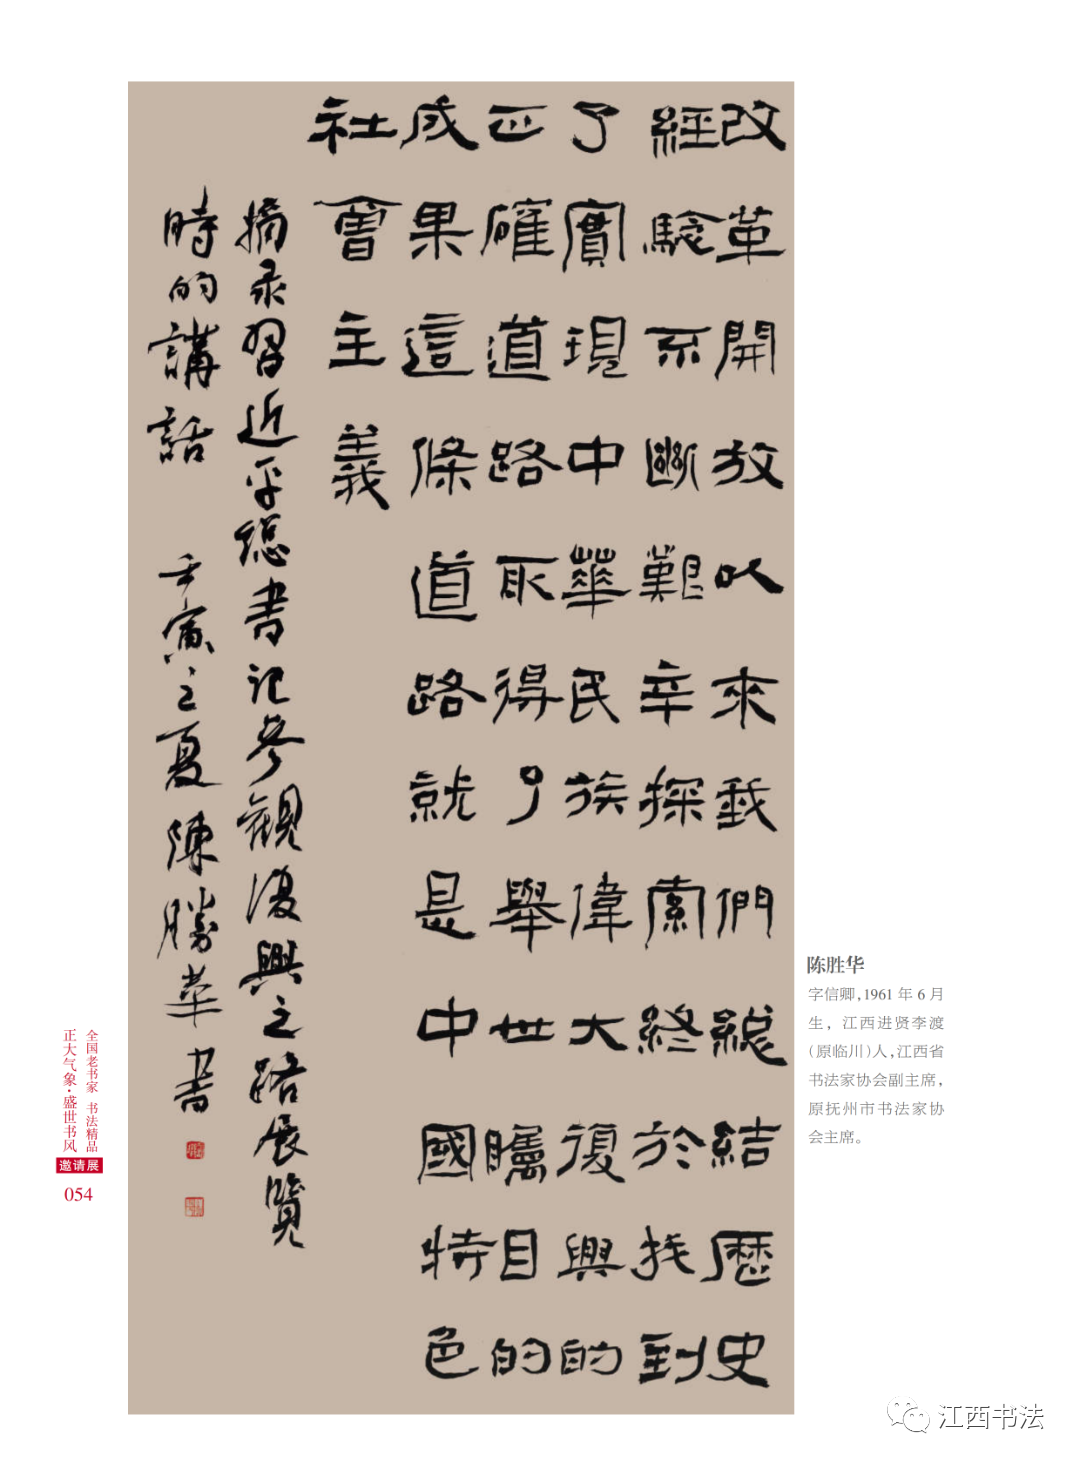 改革開放以來我們總結歷史
經驗不斷艱辛探索終於找到
了實現中華民族偉大復興的
正確道路取得了舉世矚目的
成果這條道路就是中國特色
社會主義
摘录習近平總書記參觀復興之路展覽
時的講話 壬寅之夏 陳勝華書
陈胜华
字信卿，1961 年 6 月
生，江西进贤李渡
（原临川）人，江西省
书法家协会副主席，
原抚州市书法家协
会主席。
全国老书家 书法精品
正大气象·盛世书风
邀请展
054
江西书法